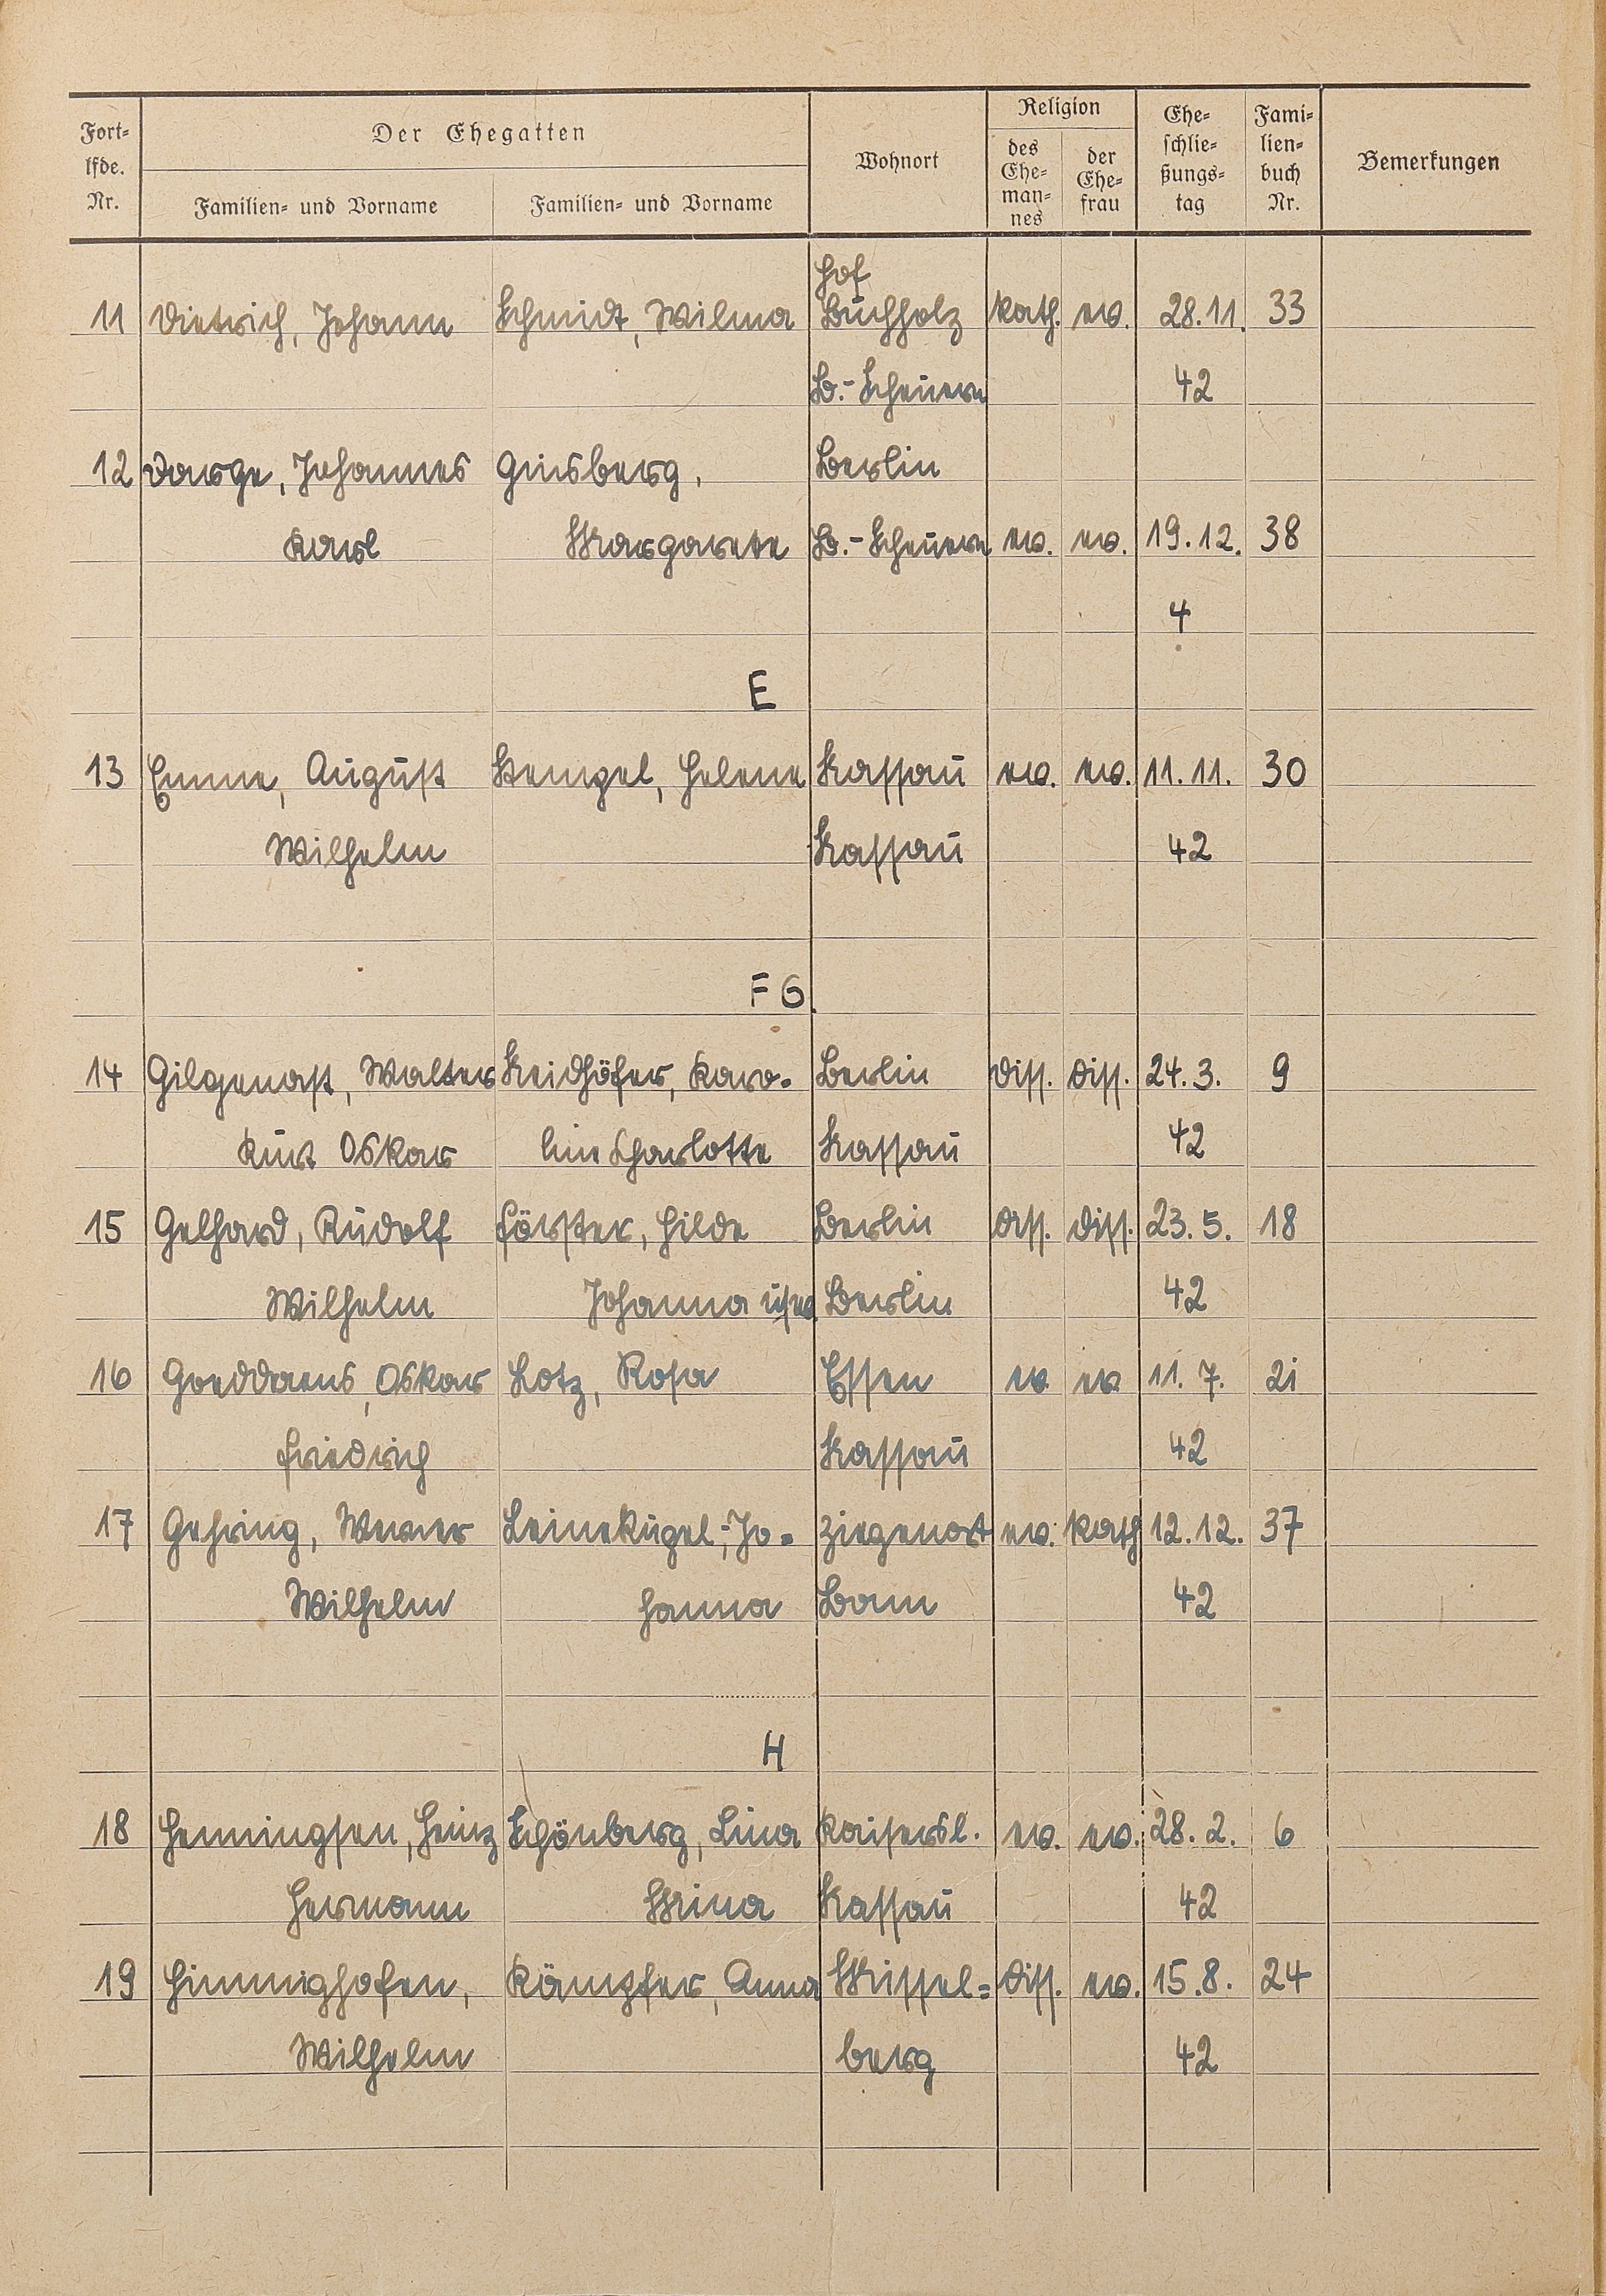 Fort-
lfde.
Nr.
Der Ehegatten
Familien- und Vorname
Familien- und Vorname
Wohnort
Religion
des
Ehe-
man-
nes
der
Ehe-
frau
Ehe-
schlie-
ßungs-
tag
Fami-
lien-
buch
Nr.
Bemerkungen
Hof
11 Dietrich, Johann Schmidt, Wilma Buchholz kath. ev. 28.11. 33
B.-Scheuern 42
12 Dorge, Johannes Ginsberg, Berlin
Karl Margarete B.-Scheuern ev. ev. 19.12. 38
4
E
13 Emme, August Stengel, Helene Nassau ev. ev. 11.11. 30
Wilhelm Nassau 42
F G
14 Gilgenast, Walter Neidhöfer, Karo- Berlin diss. diss. 24.3. 9
Kurt Oskar line Charlotte Nassau 42
15 Gelhard, Rudolf Förster, Hilde Berlin diss. diss. 23.5. 18
Wilhelm Johanna Berlin 42
16 Goeddaeus, Oskar Lotz, Rosa Essen ev ev 11.7. 21
Friedrich Nassau 42
17 Gehring, Werner Leinekugel, Jo= Ziegenort ev. kath 12.12. 37
Wilhelm hanna 42
H
18 Henningsen, Heinz Schönberg, Lina Kaisersl. ev. ev. 28.2. 6
Hermann Mina Nassau 42
19 Himmighofen, Kämpfer, Anna Misselv= diss. ev. 15.8. 24
Wilhelm berg 42